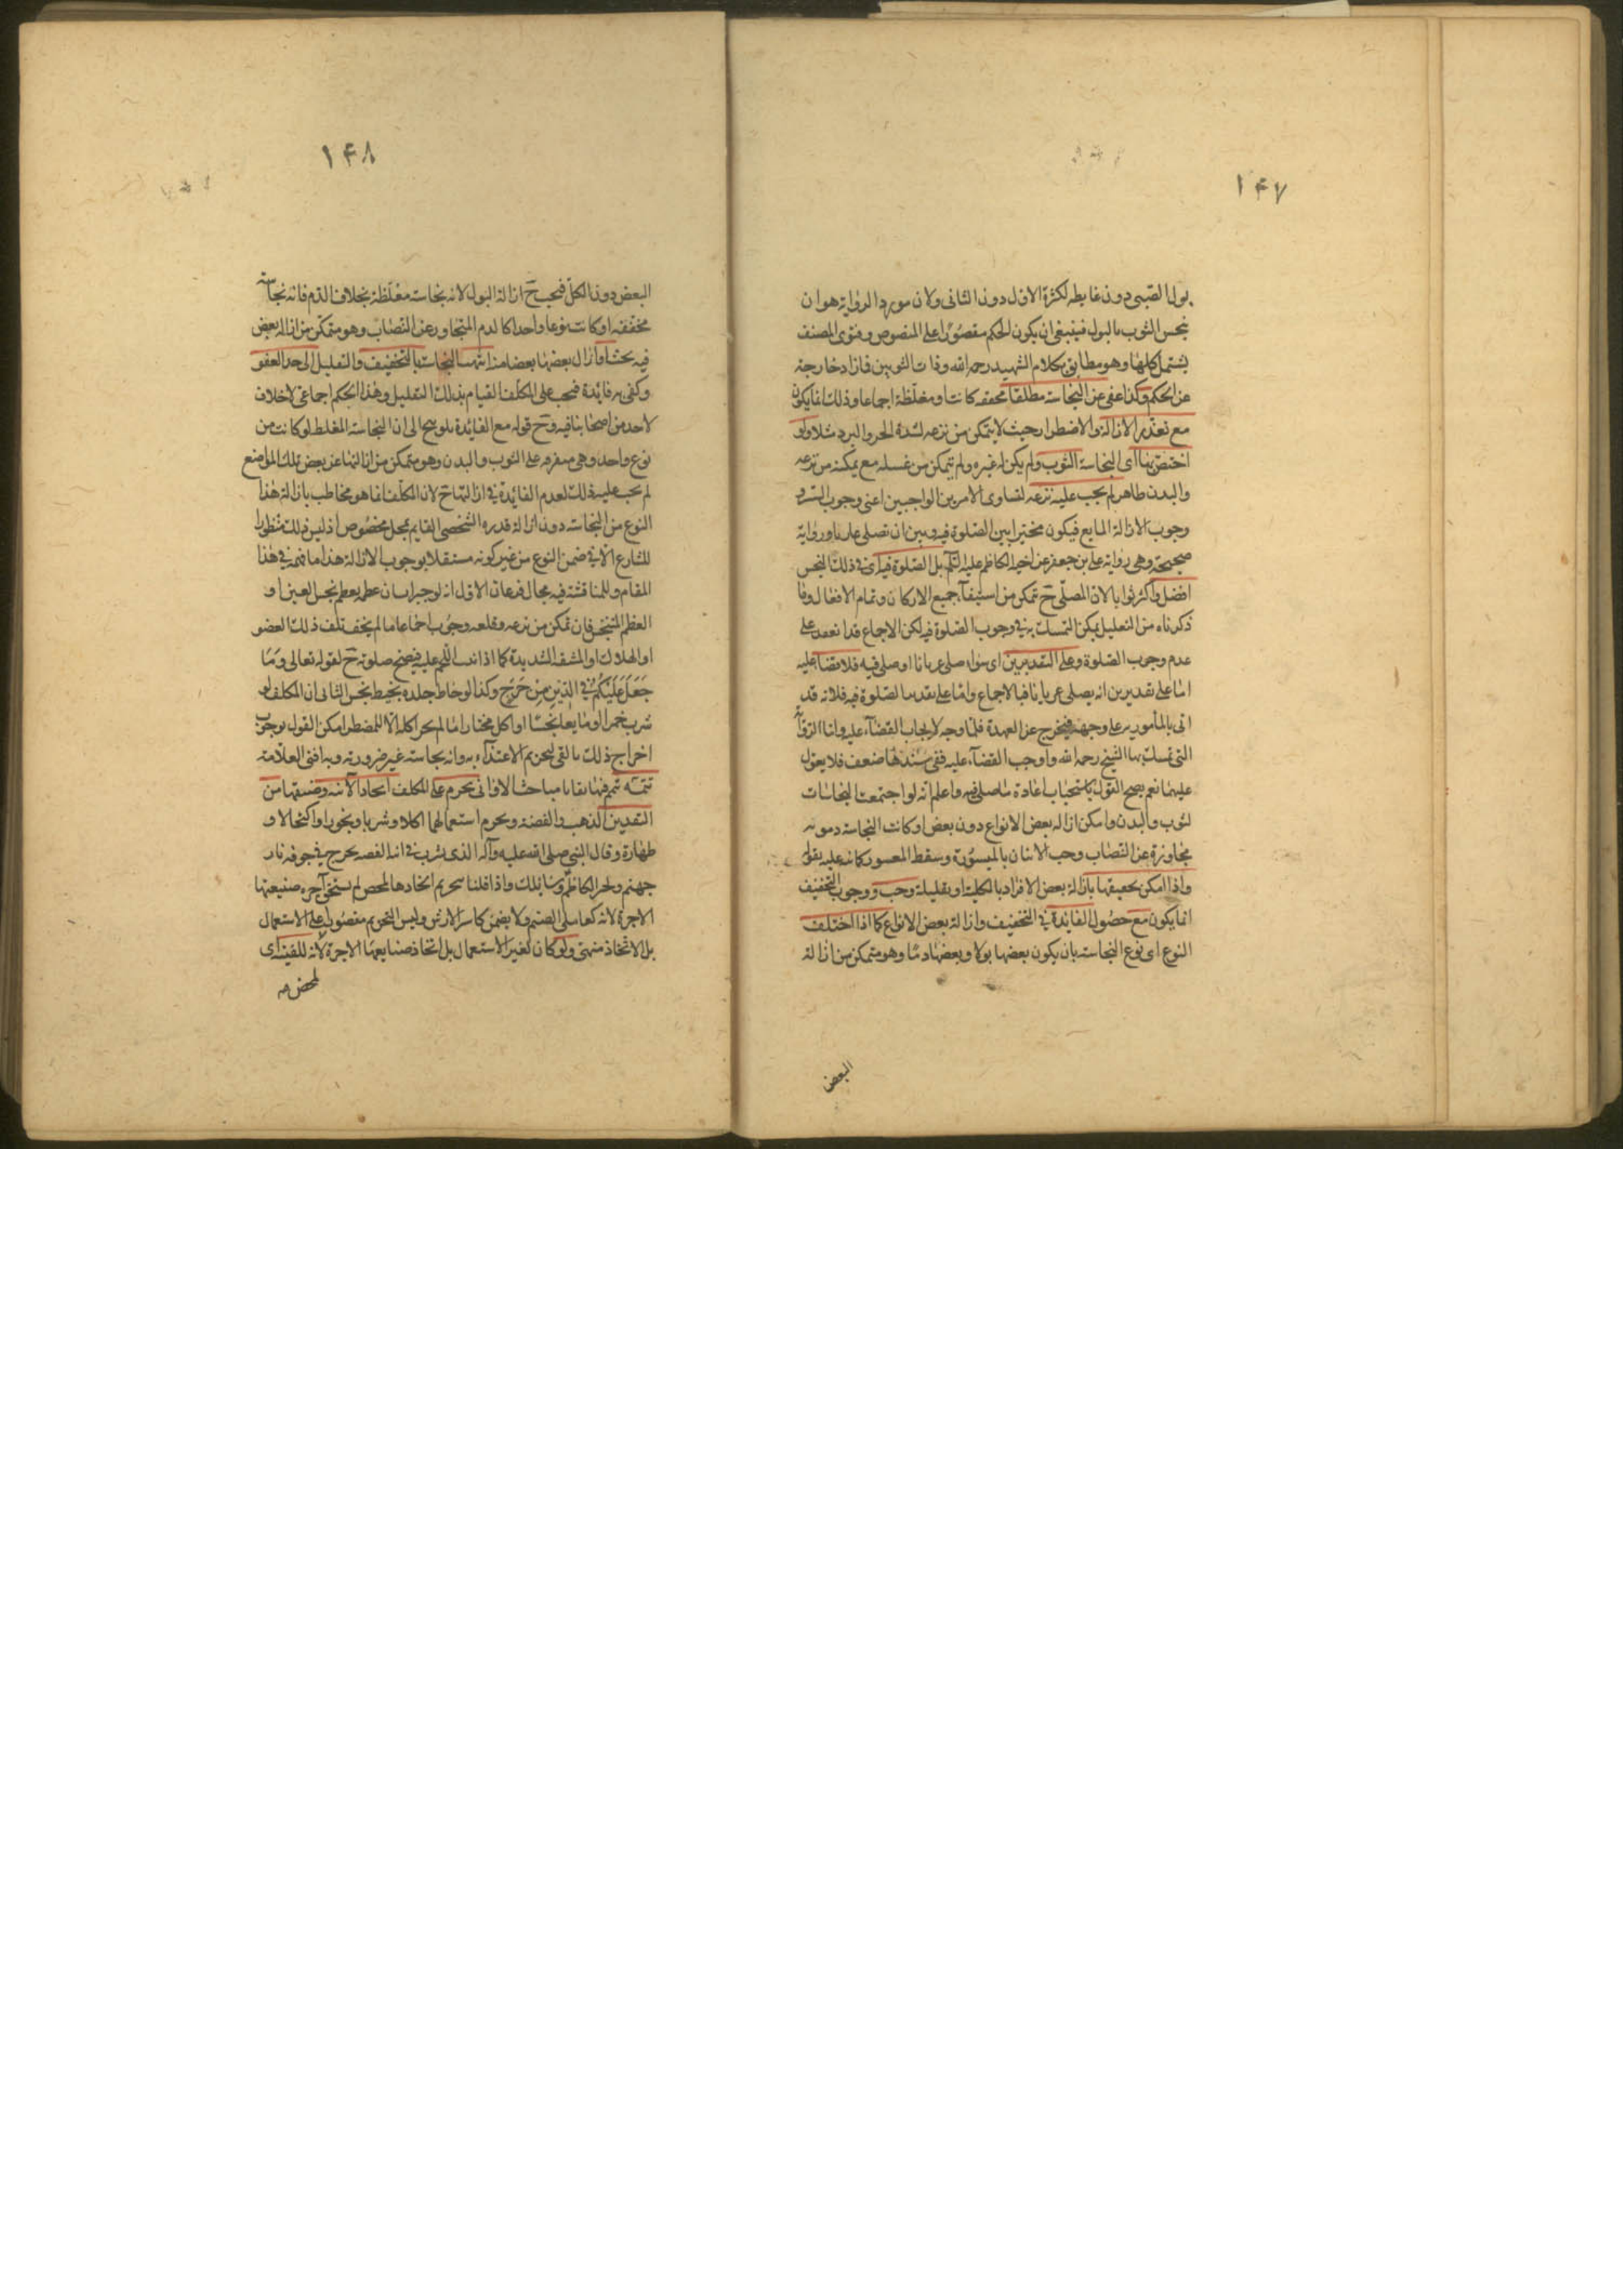 ١۴٧
بول الصّبى دون غايطه لكثرة الاول دون الثانى ولان مورد الرواية هو ان
نجس الثوب بالبول فينبغى ان يكون الحكم مقصورا على المنصوص وفتوى المصنف
يشتمل كلها وهو مطابق بكلام الشهيد رحمه الله وذات الثوبين فازاد خارجة
عن الحكم وكذا عفى عن النجاسة مطلقا مخففه كانت او مغلّظة اجماعا وذلك انما يكون
مع تعذّر الازالة والاضطرار حيث لا يتمكن من نزعه لشدة الحر والبرد مثلا ولو
اختصّ بها اى النجاسة الثوب ولم يكن له غيره ولم يتمكن من غسله مع يمكنه من نزعه
والبدن طاهر لم يجب عليه نزعه لتساوى الامرين الواجبين اعنى وجوب الستر و
وجوب الازالة المانع فيكون مخيّرا بين الصّلوة فيه وبين ان يصلى عاريا ورواية
صحيحة وهى رواية على بن جعفر عن اخيه الكاظم عليه السّلم بل الصّلوة فيه اى فى ذلك النجس
افضل واكثر ثوابا لان المصلّى ح تمكن من استيفآء جميع الاركان وتمام الافعال وما
ذكرناه من التعليل يمكن التمسك به فى وجوب الصّلوة فيه لكن الاجماع قد انعقد على
عدم وجوب الصّلوة وعلى التقديرين اى سواء صلى عريانا او صلى فيه فلا قضآء عليه
امّا على تقديرين انه يصلى عريانا فبالاجماع وامّا على تقدير الصّلوة فيه فلانه قد
اتى بالمأمور به على وجهه فيخرج عن العهدة فلا وجه لايجاب القضآء عليه وامّا الروآية
التى تمسك بها الشيخ رحمه الله واوجب القضآء عليه ففى سندها ضعف فلا يعوّل
عليها نعم يصح القول باستحباب اعادة ما صلى فيه واعلم انه لو اجتمعت النجاسات
لثوب والبدن وامكن ازاله بعض الانواع دون بعض او كانت النجاسة دمويه
مجاوزة عن النصاب وجب الاتيان بالميسورة وسقط المعسور كما نبه عليه بقوله
واذا امكن تخفيفها بازالة بعض الافراد بالكلية او بقليله وجب ووجوب التخفيف
انما يكون مع حصول الفايدة فى التخفيف وازالة بعض الانواع كما اذا اختلف
النوع اى نوع النجاسة بان يكون بعضها بولا وبعضها دمّا وهو متمكن من ازالة
البعض
١۴٨
البعض دون الكلّ فيجب ح ازالة البول لانه نجاسة مغلّظة بخلاف الدّم فانه نجاسة
مخففه او كانت نوعا واحدا كالدم المتجاوز عن النصاب وهو متمكن من ازاله بعض
فيه بحث او ازال بعضها بعضا منزلتها النجاسة بالتخفيف والتقليل الى حد العفو
وكفى به فائدة فيجب على المكلف القيام بذلك التقليل وهذا الحكم اجماعى لا خلاف
لاحد من اصحابنا فيه وح قوله مع الفائدة تلويح الى ان النجاسة المغلظ لو كانت من
نوع واحد وهى متفرقه على الثوب والبدن وهو متمكن من ازالتها عن بعض تلك المواضع
لم يجب عليه ذلك لعدم الفائدة فى ازالتها ح لان المكلف انما هو مخاطب بازالة هذا
النوع من النجاسة دون ازالة قدره الشخصى القايم بمحل مخصوص اذ ليس ذلك منظورا
للشارع الا فى ضمن النوع من غير كونه مستقلا بوجوب الازالة هذا ما فهمه فى هذا
المقام وللمناقشة فيه مجال فرعان الاول انه لو جبر انسان عظمه بعظم نجس العين او
العظم المتنجس فان تمكن من نزعه وقلعه وجوب اجماعا ما لم يخف تلف ذلك العضو
او الهلاك او المشقه الشديدة كما اذا نبت اللّحم عليه فيصح صلوته ح لقوله تعالى وَمَا
جَعَلَ عَلَيْكُمْ فِى الدِّيْنِ مِنْ حَرَجٍ وكذا لو خاط جلده بخيط نجس الثانى ان المكلف لو
شرب خمرا او مايعا نجسا او اكل مختارا ما لم يحر اكله الّا للمضطر امكن القول بوجوب
اخراج ذلك بالقى لتحريم الاغتذآء به وانه نجاسة غير ضرورته وبه افتى العلّامة
تتمّة تتم فيها بقايا مباحث الاوانى يحرم على المكلف اتخاذ الآنية وصنيعتها من
النقدين الذهب والفضة ويحرم استعمالهما اكلا وشربا وبخورا واكتحالا و
طهارة وقال النبى صلى الله عليه وآله الذى يشرب فى انية الفضه يجرجر فى جوفه نار
جهنم ولخبر الكاظم واذا قلنا بتحريم اتخادها لم يستحق اجرة صنيعتها
الاجرة لانه كعامل الصنم ولا يضمن كاسرا لارش وليس التحريم مقصورا على الاستعمال
بل الاتخاذ منهى ولو كان لغير الاستعمال بل اتخاذ صنايعها الاجرة لانه للقينة اى
لمحض